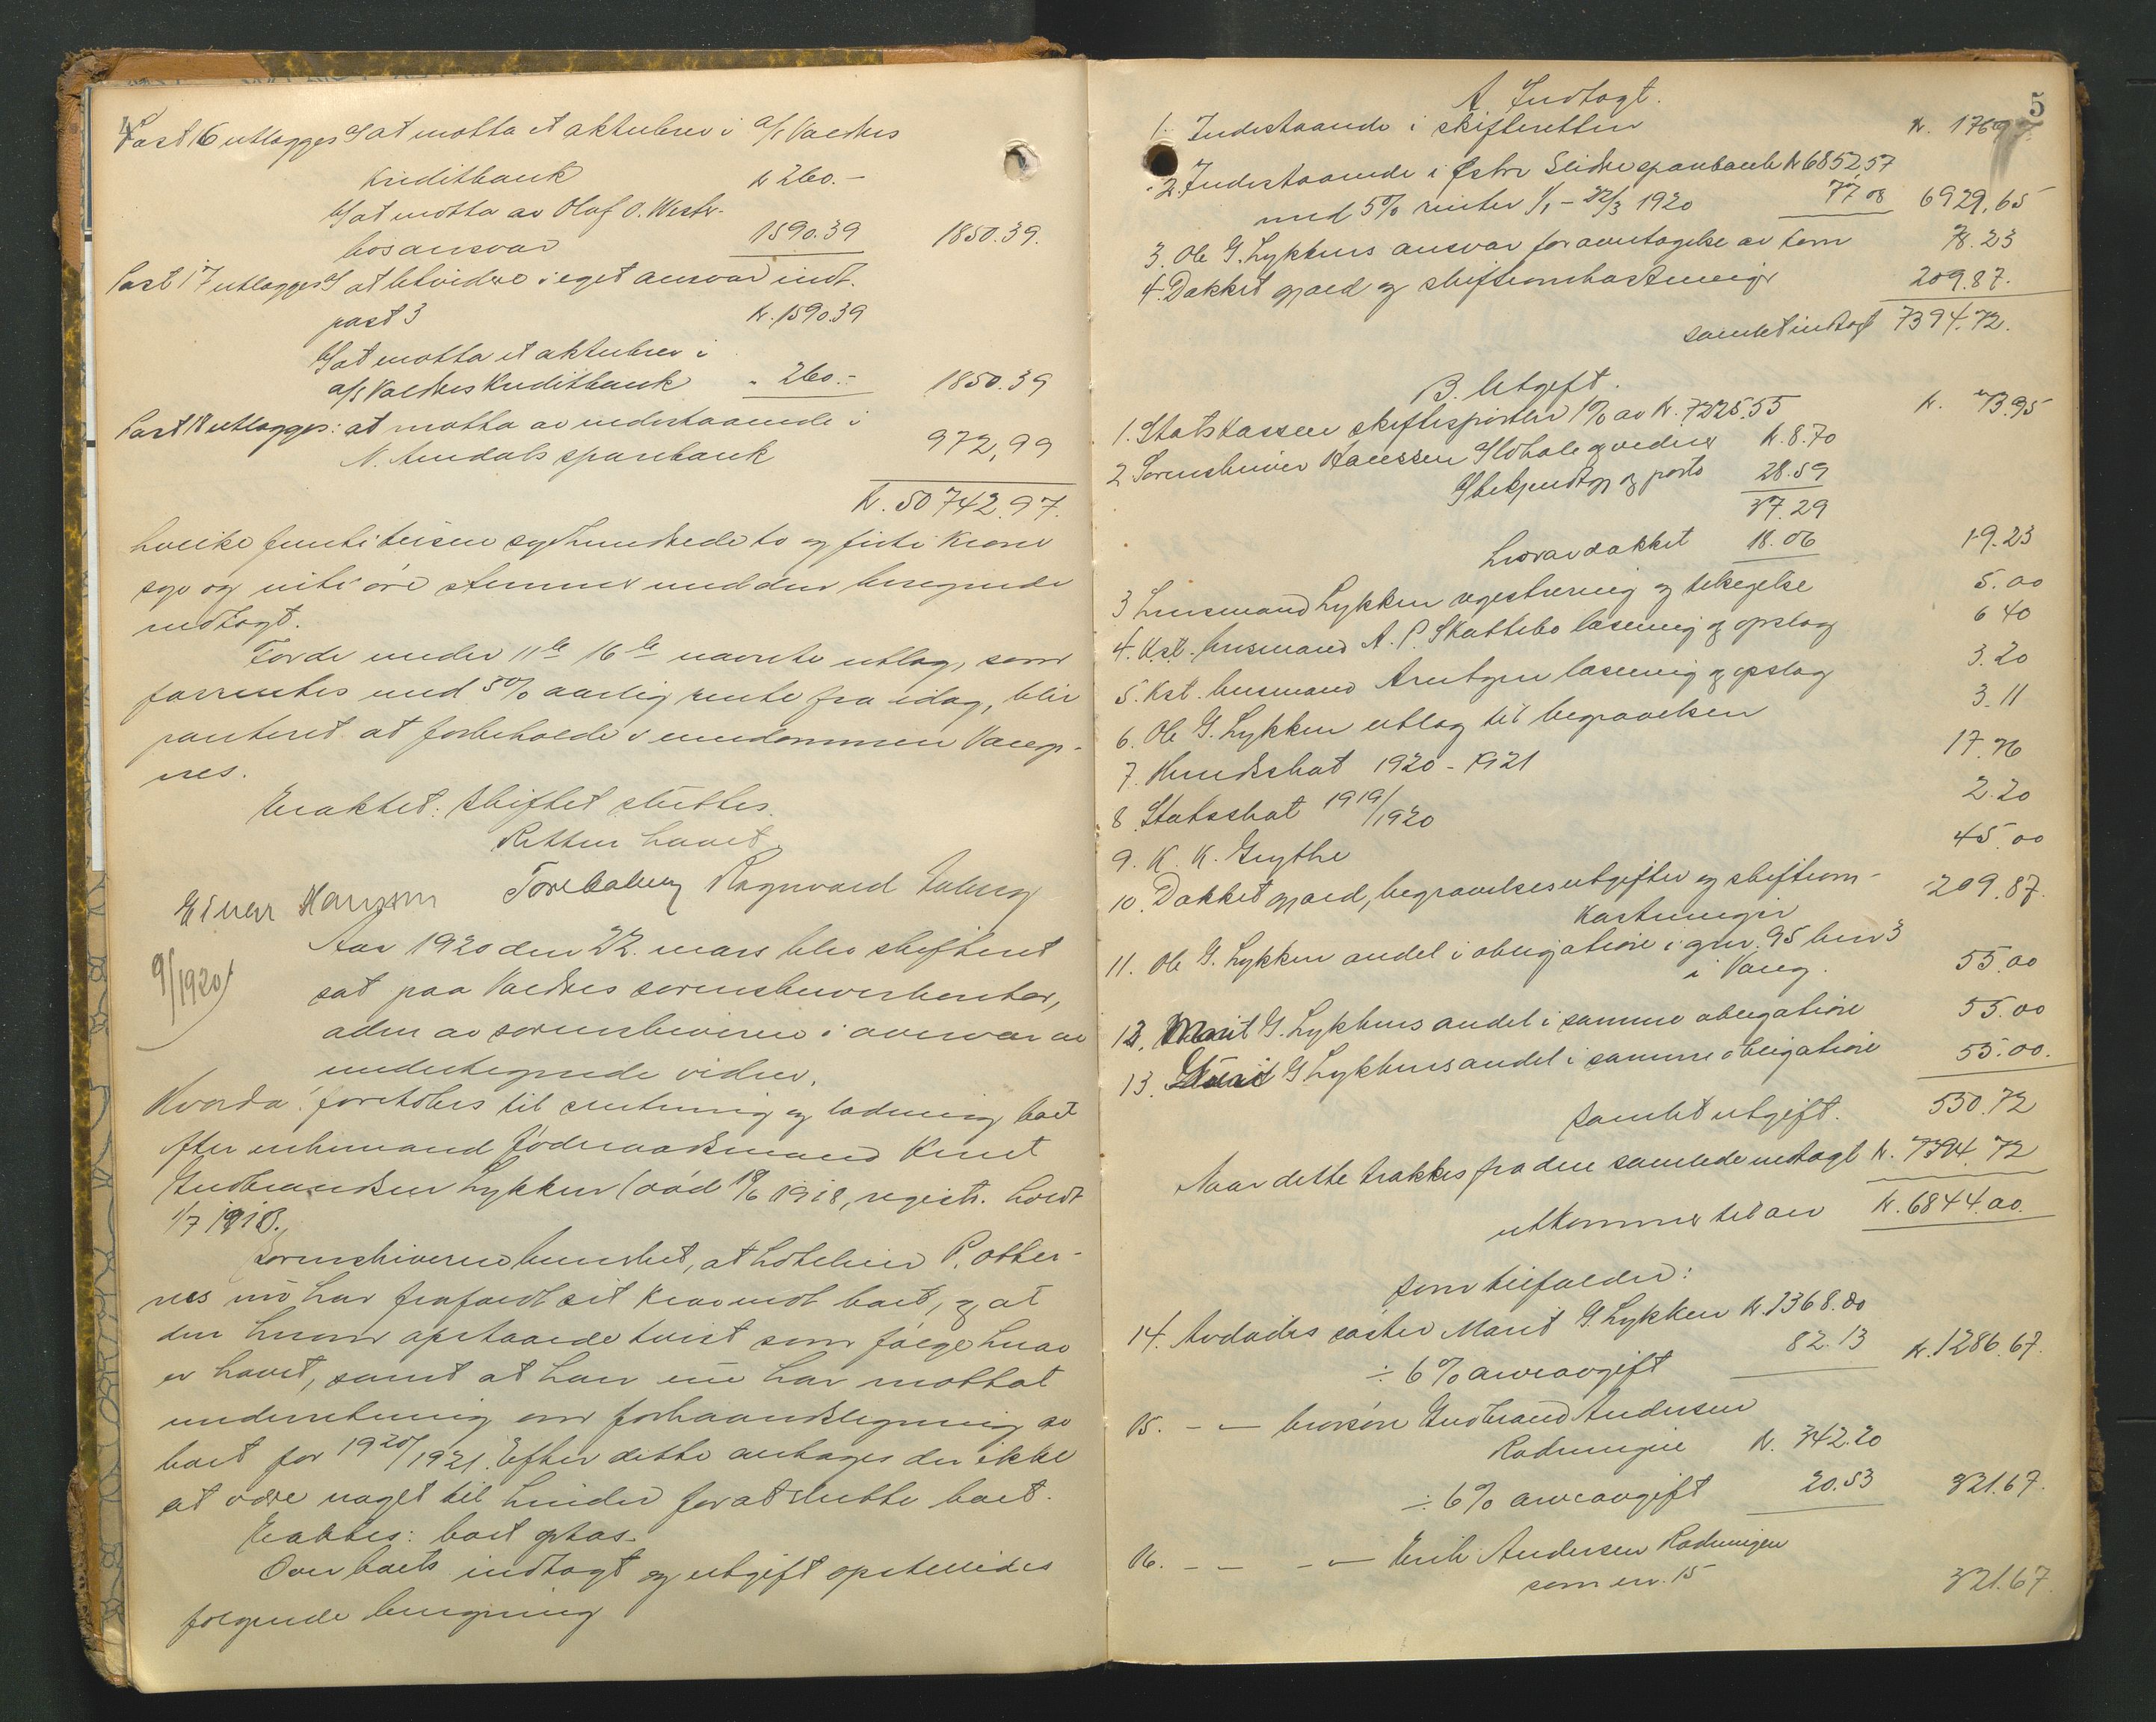 Post 16 utlægges: at motta et aktiebrev i A/S Valdres
Kreditbank k 260.-
at motta av Olaf O. Westr-
hos ansvar 1590.39 1850.39.
Post 17 utlægges at likvidere i eget ansvar indt.
post 3 kr. 1590.39
at motta et aktiebrev i
A/S Valdres Kreditbank " 260.- 1850.39
Post 18 utlægges: at motta av indestaaende i
N. Aurdals sparebank 972,99
kr. 50742.97.
hvilke femti tusen syvhundrede to og firti kroner
syv og niti øre stemmer med den beregnede
indtægt.
For de under 11te 16te nævnte utlæg, som
forrentes med 5% aarlig rente fra idag, blir
panteret at forbeholde i eiendommen Vangs-
nes.
Eraktet: Skiftet sluttes.
Retten hævet.
Einar Hanssen Tore Kalberg Ragnvald
9/1920
Aar 1920 den 22. mars blev skifteret
sat paa Valdres sorenskriverkontor,
adm av sorenskriveren i overvær av
undertegnede vidner.
Hvorda: foretokes til slutning og lodning boet
efter enkemand føderaadsmand Knut
Gudbrandsen Lykken (død 19/6 1918, registr. holdt
1/7 1918.)
Sorenskriveren bemerket, at hotelleier P. Offer-
nes nu har frafaldt sit krav mot boet, og at
den hvorom opstaaede tvist som følge herav
er hævet, samt at han nu har mottat
underretning om forhaandsligning av
boet for 1920/1921. Efter dette antages der ikke
at være noget til hinder for at slutte boet.
Eraktes: boet optas.
Over boets indtægt og utgift opstilledes
følgende beregning
5
A. Indtægt.
1. Indestaaende i skifteretten kr. 176.97
2. Indestaaende i Østre Slidre sparebank kr 6852.57
med 5% renter 1/1 - 22/3 1920 77.08 6929,65
3. Ole G. Lykkens ansvar for avertagelse av korn 78.23
4. Dækket gjæld og skifteomkostninger 209.87.
samlet indtægt 7394.72.
B. Utgift.
1. Statskassen skiftesportler 1% av kr. 7225.55 kr. 73.95
2 Sorenskriver Hanssen Ildhold og vidner kr. 8.70
bekjendtgj og porto 28.59
37.29
hvorav dækket 18.06 19.23
3 Lensmand Lykken registrering og tilsigelse 5.00
4. Kst. lensmand A. P. Skattebo læsning og opslag 6 40
5. Kst. lensmand Arntzen læsning og opslag 3.20
6. Ole G. Lykken utlæg til begravelsen 3.11
7. Hundskat 1920 - 1921 17.76
8 Statsskat 1919/1920 2.20
9. K. K. Grythe 45.00
10. Dækket gjæld, begravelsesutgifter og skifteom-
kostninger 209.87.
11. Ole G. Lykken andel i obligation i gnr. 95 bnr 3
i Vang. 55.00
12. Marit G. Lykkens andel i samme obligation 55.00
13. G Lykkens andel i samme obligation 55.00.
Samlet utgift. 550.72
Naar dette trækkes fra den samlede indtægt k. 7394.72
utkommer til arv kr. 6844.00.
Som tilfalder:
14. Avdødes søster Marit G. Lykken kr. 1368.80
÷ 6% arveavgift 82.13 kr. 1286.67.
15. - - brorsøn Gudbrand Andersen
Rødningen kr. 342.20
÷ 6% arveavgift 20.53 321.67.
16. - - - - Erik Andersen Rødningen
som nr. 15 321.67.